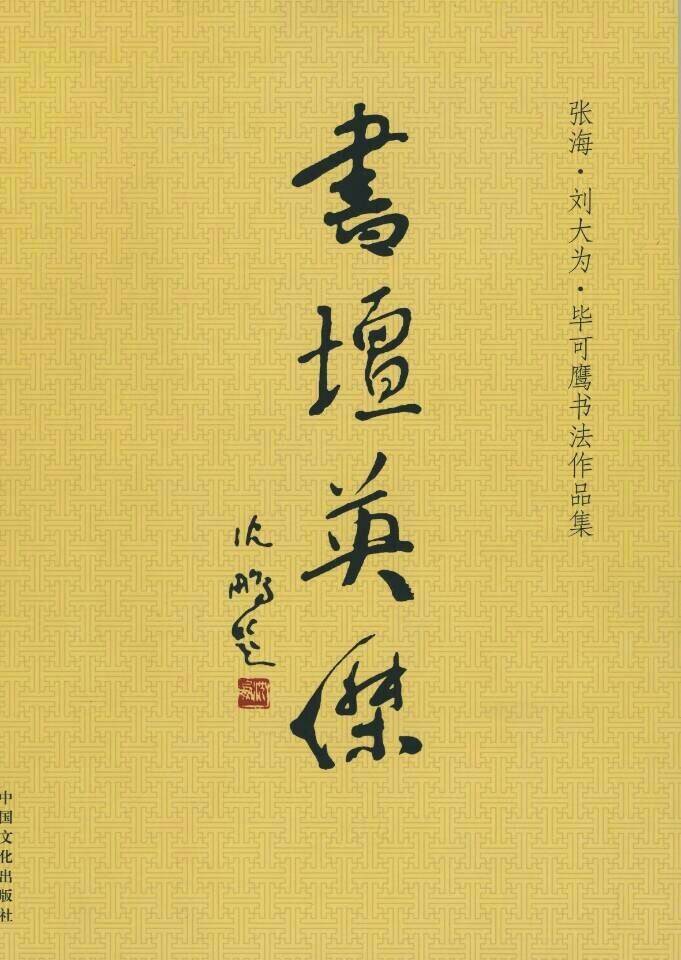 张海·刘大为·毕可鹰书法作品集
書壇英傑
沈鹏题
中国文化出版社